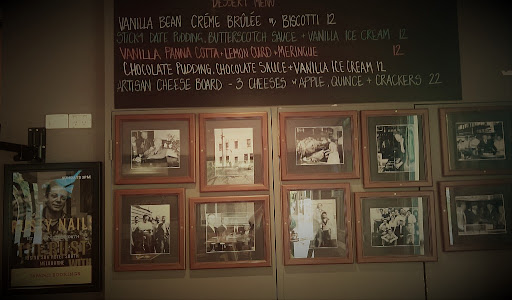 DESSERT MENU
VANILLA BEAN CRÉME BRÛLÉE W BISCOTTI 12
STICKY DATE PUDDING, BUTTERSCOTCH SAUCE + VANILLA ICE CREAM 12
VANILLA PANNA COTTA + LEMON CURD + MERINGUE 12
CHOCOLATE PUDDING, CHOCOLATE SAUCE + VANILLA ICE CREAM 12
ARTISAN CHEESE BOARD - 3 CHEESES W APPLE, QUINCE + CRACKERS 22
NAIL
MELBOURNE